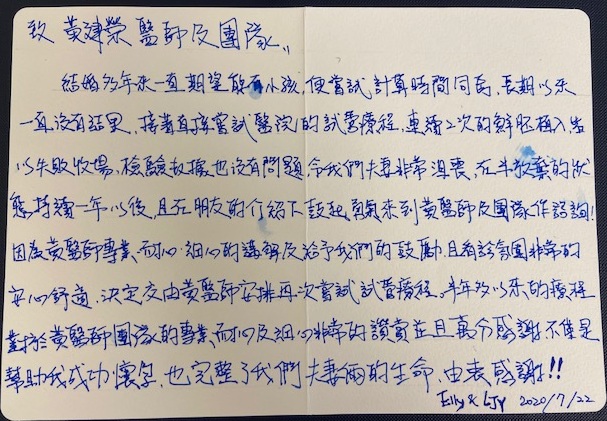 致 黃建榮醫師及團隊,,
結婚多年來一直期望能有小孩,便嘗試計算時間同房,長期以來
一直沒有結果,接著直接嘗試醫院的試管療程,連續2次的鮮胚植入皆
以失敗收場,檢驗數據也沒有問題令我們夫妻非常沮喪,在半放棄的狀
態持續一年以後,且在朋友的介紹下鼓起勇氣來到黃醫師及團隊作諮詢!
因為黃醫師專業、耐心、細心的講解及給予我們的鼓勵,且看診氛圍非常的
安心舒適,決定交由黃醫師安排再次嘗試試管療程。半年多以來的療程
對於黃醫師團隊的專業、耐心及細心非常的讚賞並且萬分感謝,不僅是
幫助我成功懷孕,也完整了我們夫妻倆的生命,由衷感謝!!
Elly &
2020/7/22